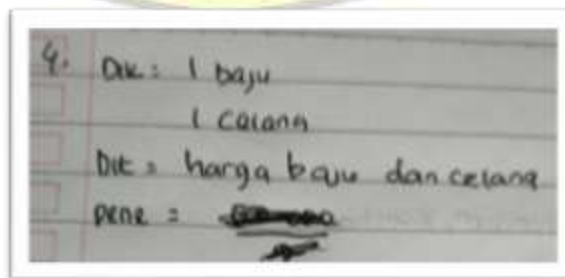 4. Dik : 1 baju
1 calana
Dit = harga baju dan celana
pene =